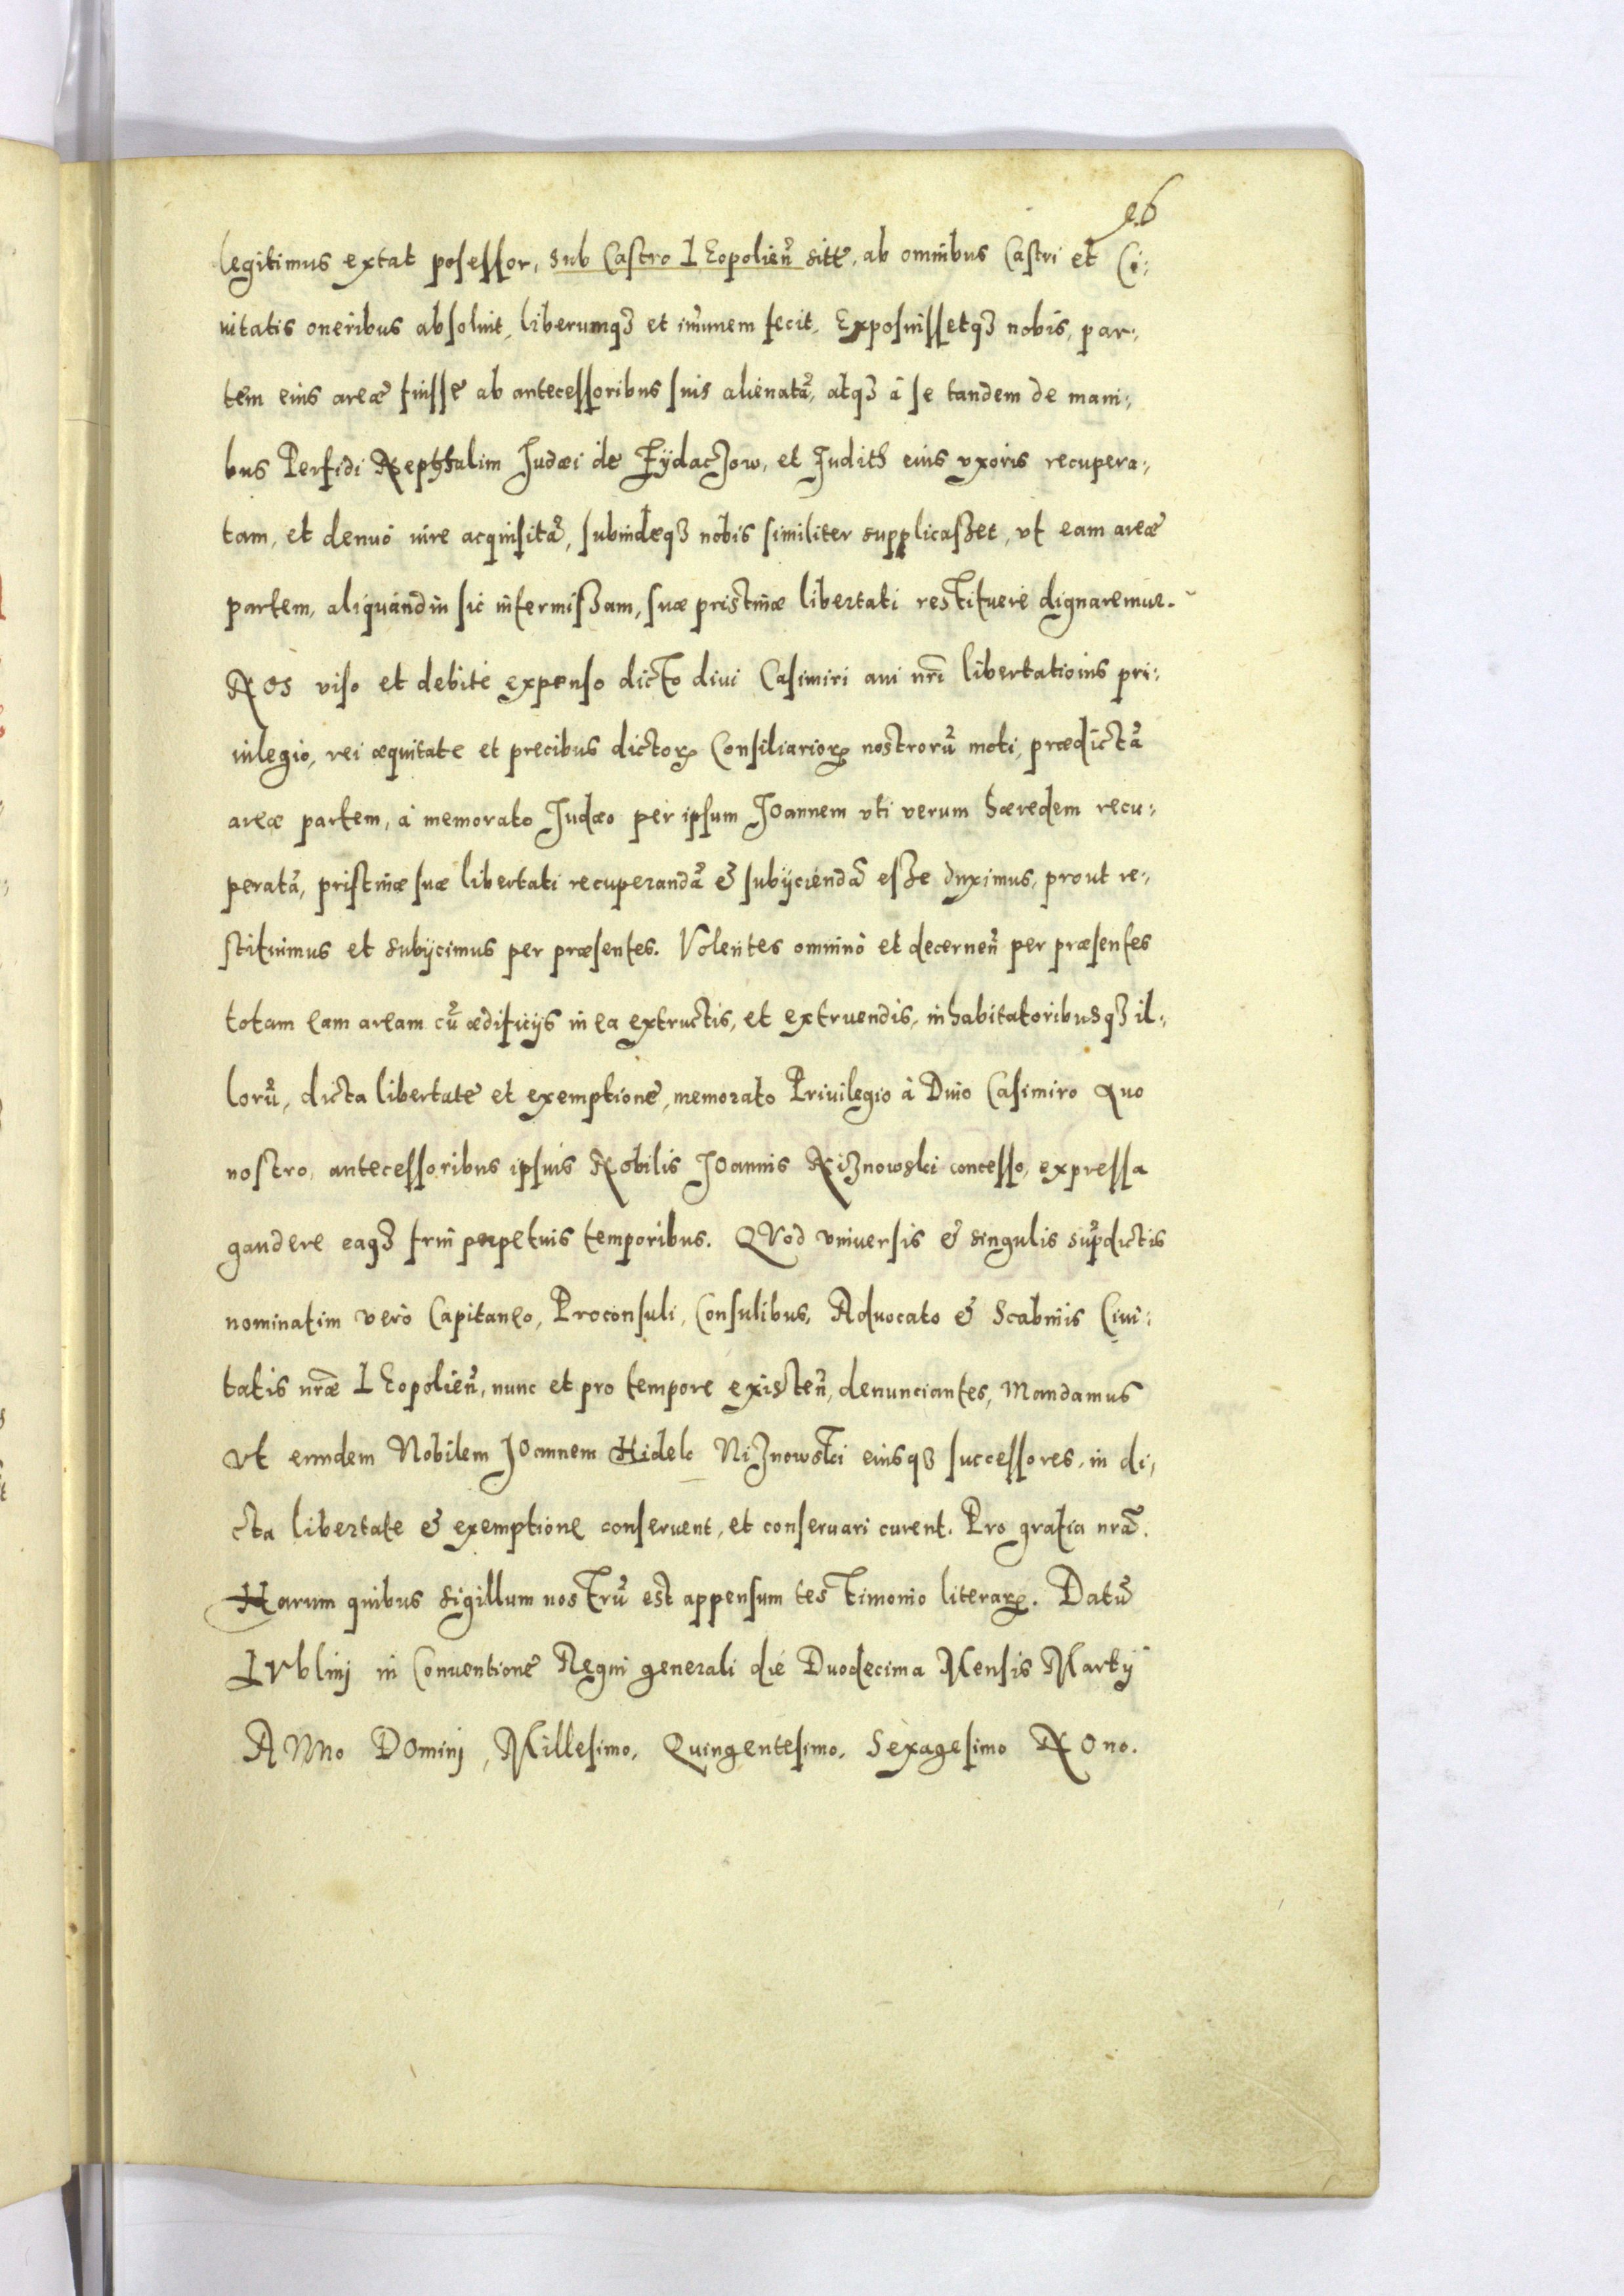 legitimus extat posessor, sub Castro LEopolien̄ sitæ, ab omnibus Castri et Ci:
uitatis oneribus absoluit, liberumqʒ et im̄unem fecit. Exposuissetqʒ nobis, par:
tem eius areæ fuisse ab antecessoribus suis alienatā, atqʒ à se tandem de mani:
bus Perfidi Nephthalim Judæi de Zydaczow, et Judith eius vxoris recupera:
tam, et denuò iure acquisitā, subindeqʒ nobis similiter supplicasset, vt eam areæ
partem, aliquandiu sic intermissam, suæ pristinæ libertati restituere dignaremur.
NOs viso et debitè expenso dicto diui Casimiri aui nr̄i libertationis pri:
uilegio, rei æquitate et precibus dictoꝝ Consiliarioꝝ nostrorū moti, prædictā
areæ partem, à memorato Judæo per ipsum JOannem vti verum hæredem recu:
peratā, pristinæ suæ libertati recuperandā & subijciendā esse duximus, prout re:
stituimus et subijcimus per præsentes. Volentes omninò et decernen̄ per præsentes
totam eam aream cū ædificijs in ea extructis, et extruendis, inhabitatoribusqʒ il:
lorū, dicta libertate et exemptione, memorato Priuilegio à Diuo Casimiro Auo
nostro, antecessoribus ipsius Nobilis JOannis Niznowski concesso, expressa
gaudere eaqʒ frui perpetuis temporibus. QVod vniuersis & singulis sup̄dictis
nominatim verò Capitaneo, Proconsuli, Consulibus, Aduocato & Scabinis Ciui:
tatis nr̄æ LEopolien̄, nunc et pro tempore existen̄, denunciantes, Mandamus
vt eundem Nobilem JOannem Hidek Niznowski eiusqʒ successores, in di:
cta libertate & exemptione conseruent, et conseruari curent. Pro gratia nr̄a.
Harum quibus sigillum nostrū est appensum testimonio literaꝝ. Datū
LVblinj in Conuentione Regni generali die Duodecima Mensis Martij
ANno DOminj, Millesimo, Quingentesimo, Sexagesimo NOno.